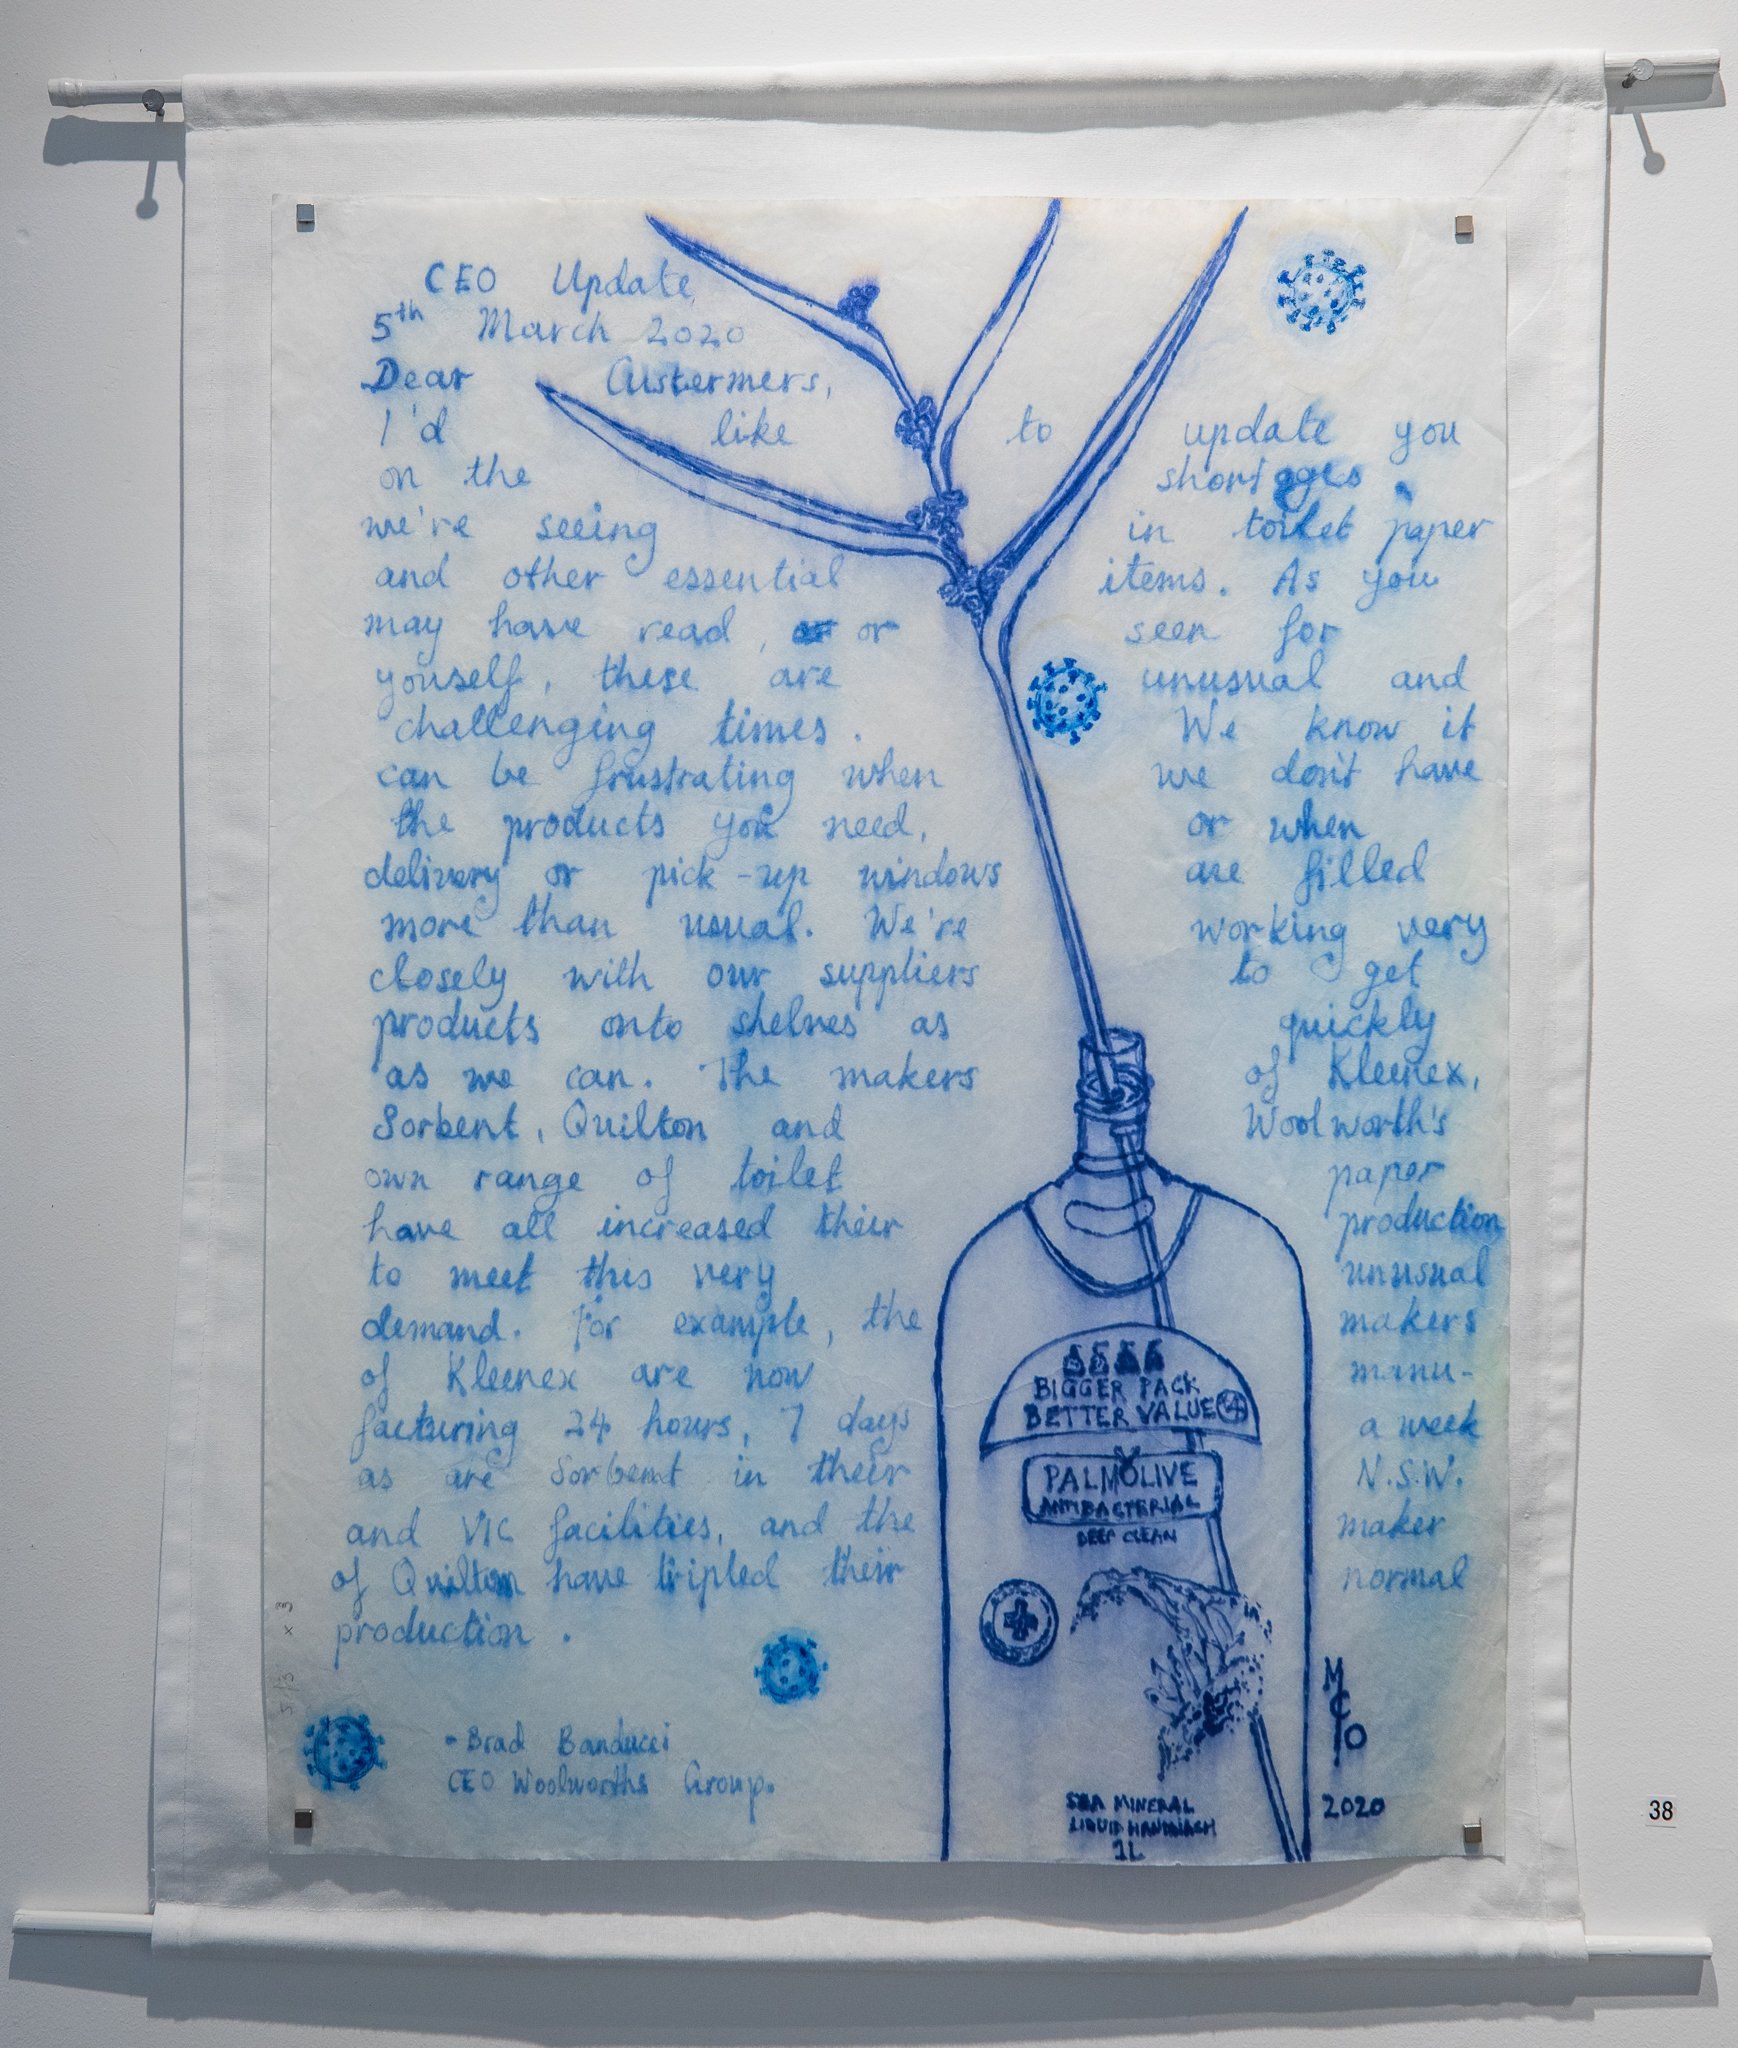 CEO Update
5th March 2020
Dear Custermers,
I'd like to update you
on the shortages
we're seeing in toilet paper
and other essential items. As you
may have read, or seen for
youself, these are unusual and
challenging times. We know it
can be frustrating when we don't have
the products you need, or when
delivery or pick-up windows are filled
more than usual. We're working very
closely with our suppliers to get
products onto shelves as quickly
as we can. The makers of Kleenex,
Sorbent, Quilton and Woolworth's
own range of toilet paper
have all increased their production
to meet this very unusual
demand. For example, the makers
of Kleenex are now manu-
facturing 24 hours, 7 days a week
as are Sorbent in their N.S.W.
and VIC facilities, and the maker
of Quilton have tripled their normal
production.
- Brad Banducci
CEO Woolworths Group.
BIGGER PACK
BETTER VALUE
PALMOLIVE
ANTIBACTERIAL
DEEP CLEAN
SEA MINERAL
LIQUID HANDWASH
1L
2020
38